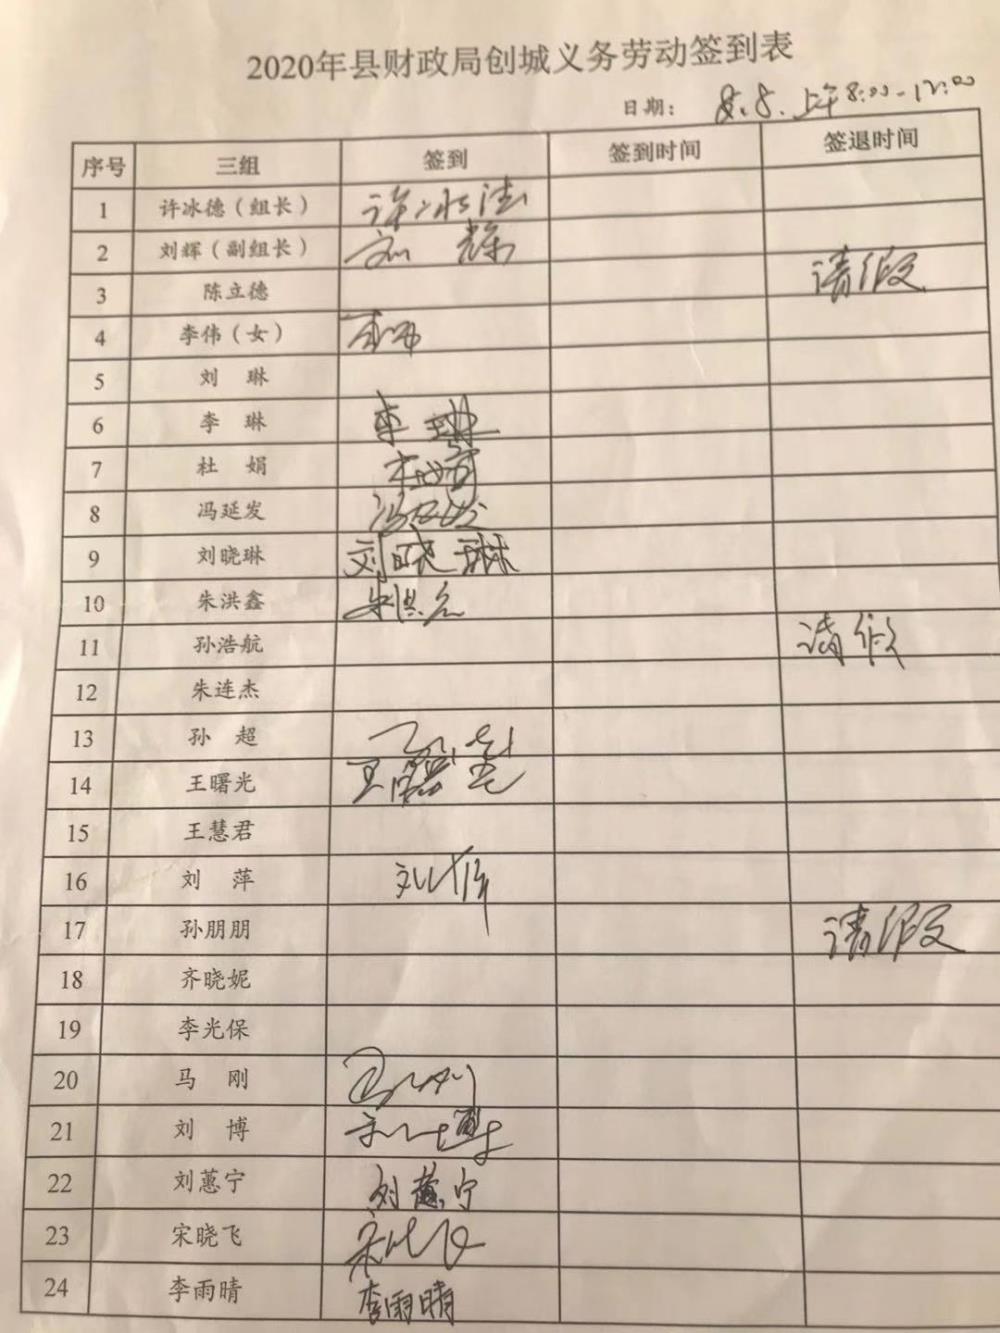 2020年县财政局创城义务劳动签到表
日期： 8.8.上午8:00-12:00
序号 三组 签到 签到时间 签退时间
1 许冰德（组长） 许冰德
2 刘辉（副组长） 刘辉
3 陈立德 请假
4 李伟（女） 李伟
5 刘琳
6 李琳 李琳
7 杜娟 杜娟
8 冯延发 冯延发
9 刘晓琳 刘晓琳
10 朱洪鑫 朱洪鑫
11 孙浩航 请假
12 朱连杰
13 孙超 孙超
14 王曙光 王曙光
15 王慧君
16 刘萍 刘萍
17 孙朋朋 请假
18 齐晓妮
19 李光保
20 马刚 马刚
21 刘博 刘博
22 刘蕙宁 刘蕙宁
23 宋晓飞 宋晓飞
24 李雨晴 李雨晴